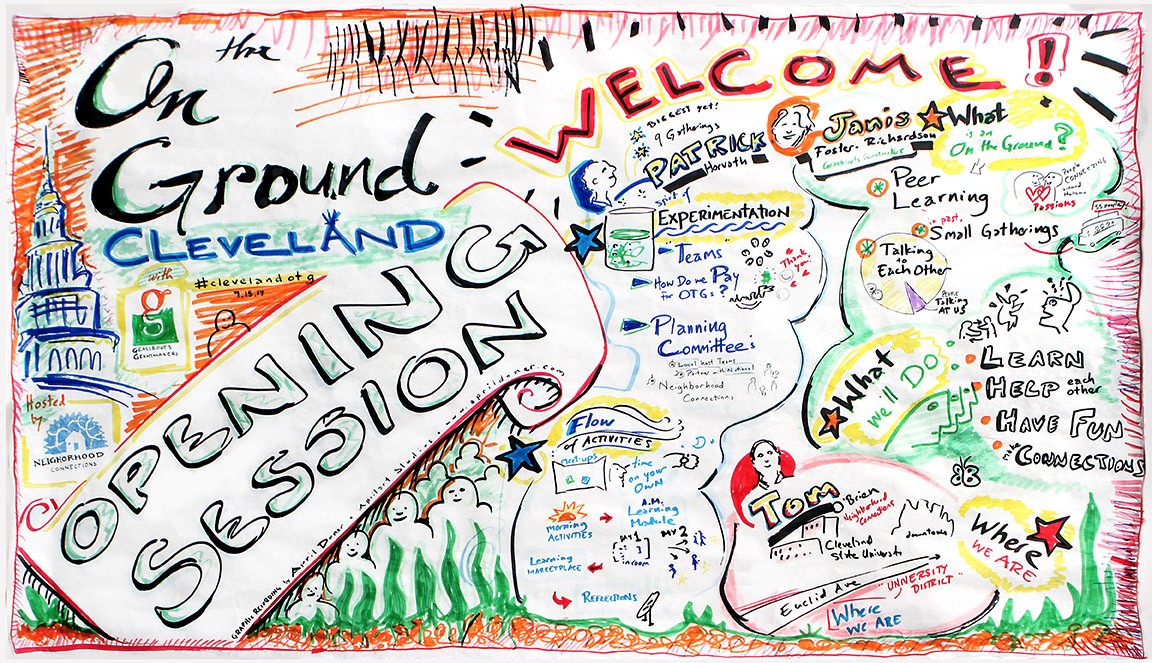 On the
Ground:
CLEVELAND
with
g
GRASSROOTS
GRANTMAKERS
#clevelandotg
9.15.14
Hosted
by
NEIGHBORHOOD
CONNECTIONS
OPENING
SESSION
GRAPHIC RECORDING by April Doner
www.aprildoner.com
WELCOME!
BIGGEST yet!
9 Gatherings
PATRICK
Horvath
spirit of
EXPERIMENTATION
Teams
How Do we Pay
for OTGs?
Thank
you!
Planning
Committees
Local host Teams
Partner w/ National
Neighborhood
Connections
Flow
OF ACTIVITIES
meet-ups
time
on your
OWN
Morning
ACTIVITIES
A.M.
Learning
Module
MV 1
MV 2
in room
Learning
MARKETPLACE
REFLECTIONS
Janis
Foster-Richardson
Grassroots Grantmakers
What
is an
On the Ground?
Peer
Learning
People
CONNECTING
around
their
Passions
in past,
Small Gatherings
55 people
Talking
to
Each Other
PEOPLE
Talking
AT US
What
We'll DO
LEARN
HELP each
other
HAVE FUN
CONNECTIONS
TOM
O'Brien
Neighborhood
Connections
Cleveland
State University
downtown
Euclid Ave
"UNIVERSITY
DISTRICT"
Where
WE ARE
Where
WE ARE